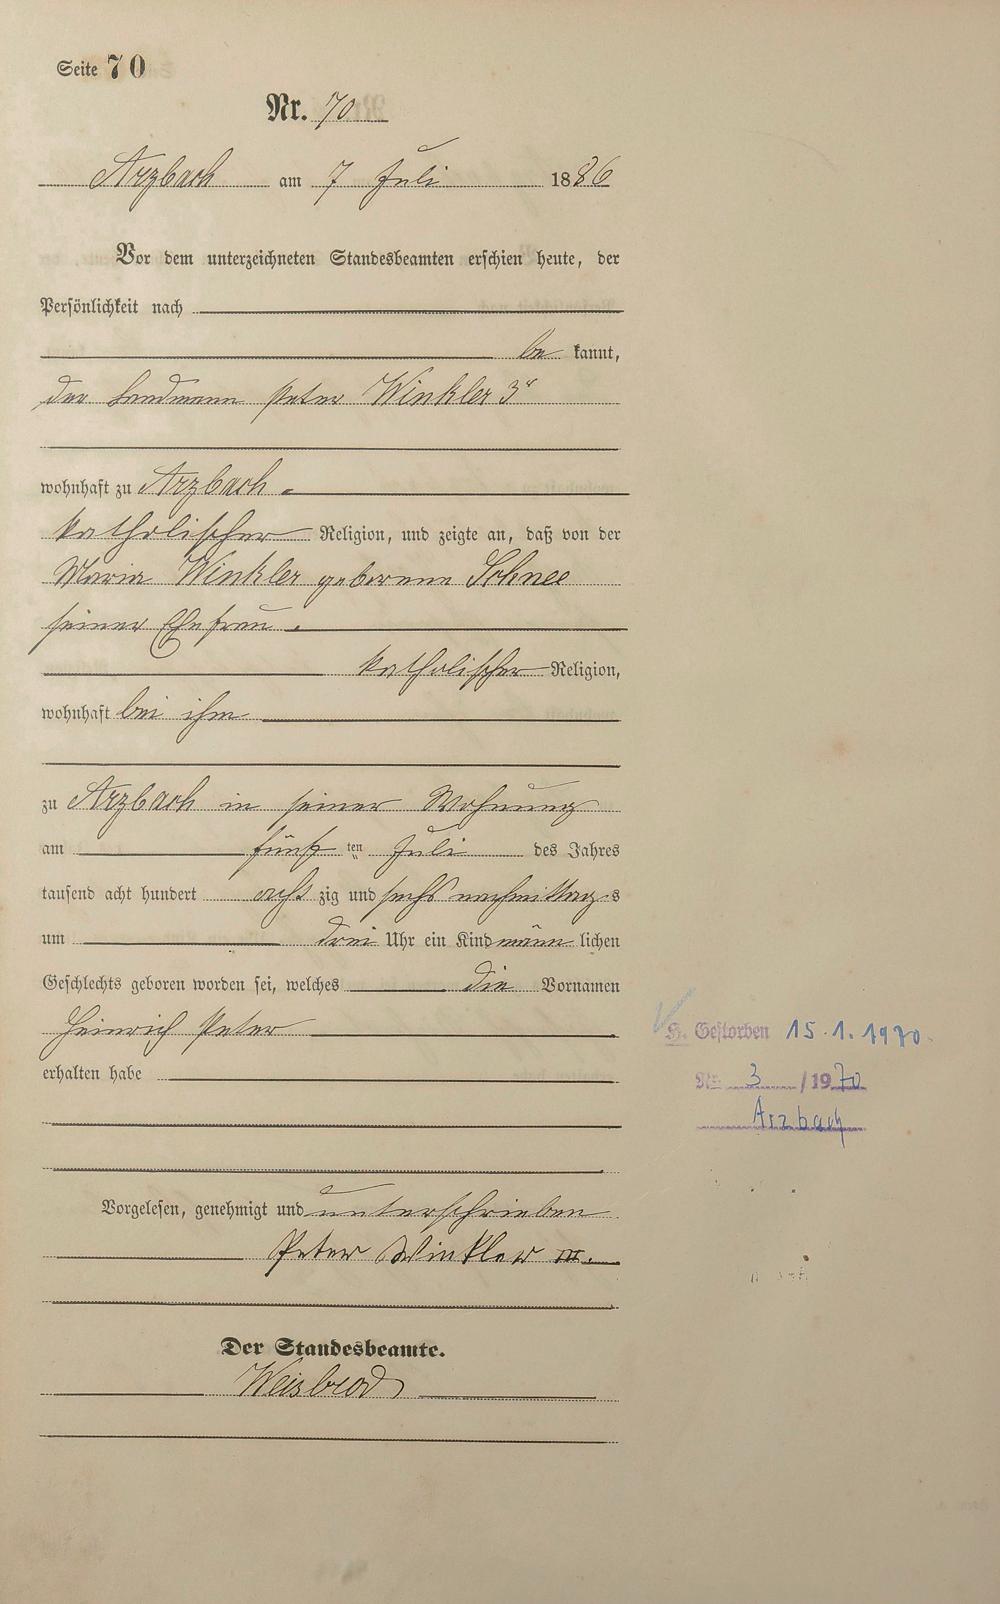 Seite 70
Nr. 70
Arzbach am 7 Juli 1886
Vor dem unterzeichneten Standesbeamten erschien heute, der
Persönlichkeit nach
be kannt,
der Landmann Peter Winkler 3r
wohnhaft zu Arzbach.
katholischer Religion, und zeigte an, daß von der
Maria Winkler geborene Schnee
seiner Ehefrau.
katholischer Religion,
wohnhaft bei ihm
zu Arzbach in seiner Wohnung
am fünf ten Juli des Jahres
tausend acht hundert acht zig und sechs nachmittags
um drei Uhr ein Kind männ lichen
Geschlechts geboren worden sei, welches die Vornamen
Heinrich Peter
erhalten habe
Vorgelesen, genehmigt und unterschrieben
Peter Winkler III.
Der Standesbeamte.
Weisbrod
H. Gestorben 15.1.1970.
Nr. 3 /1970
Arzbach